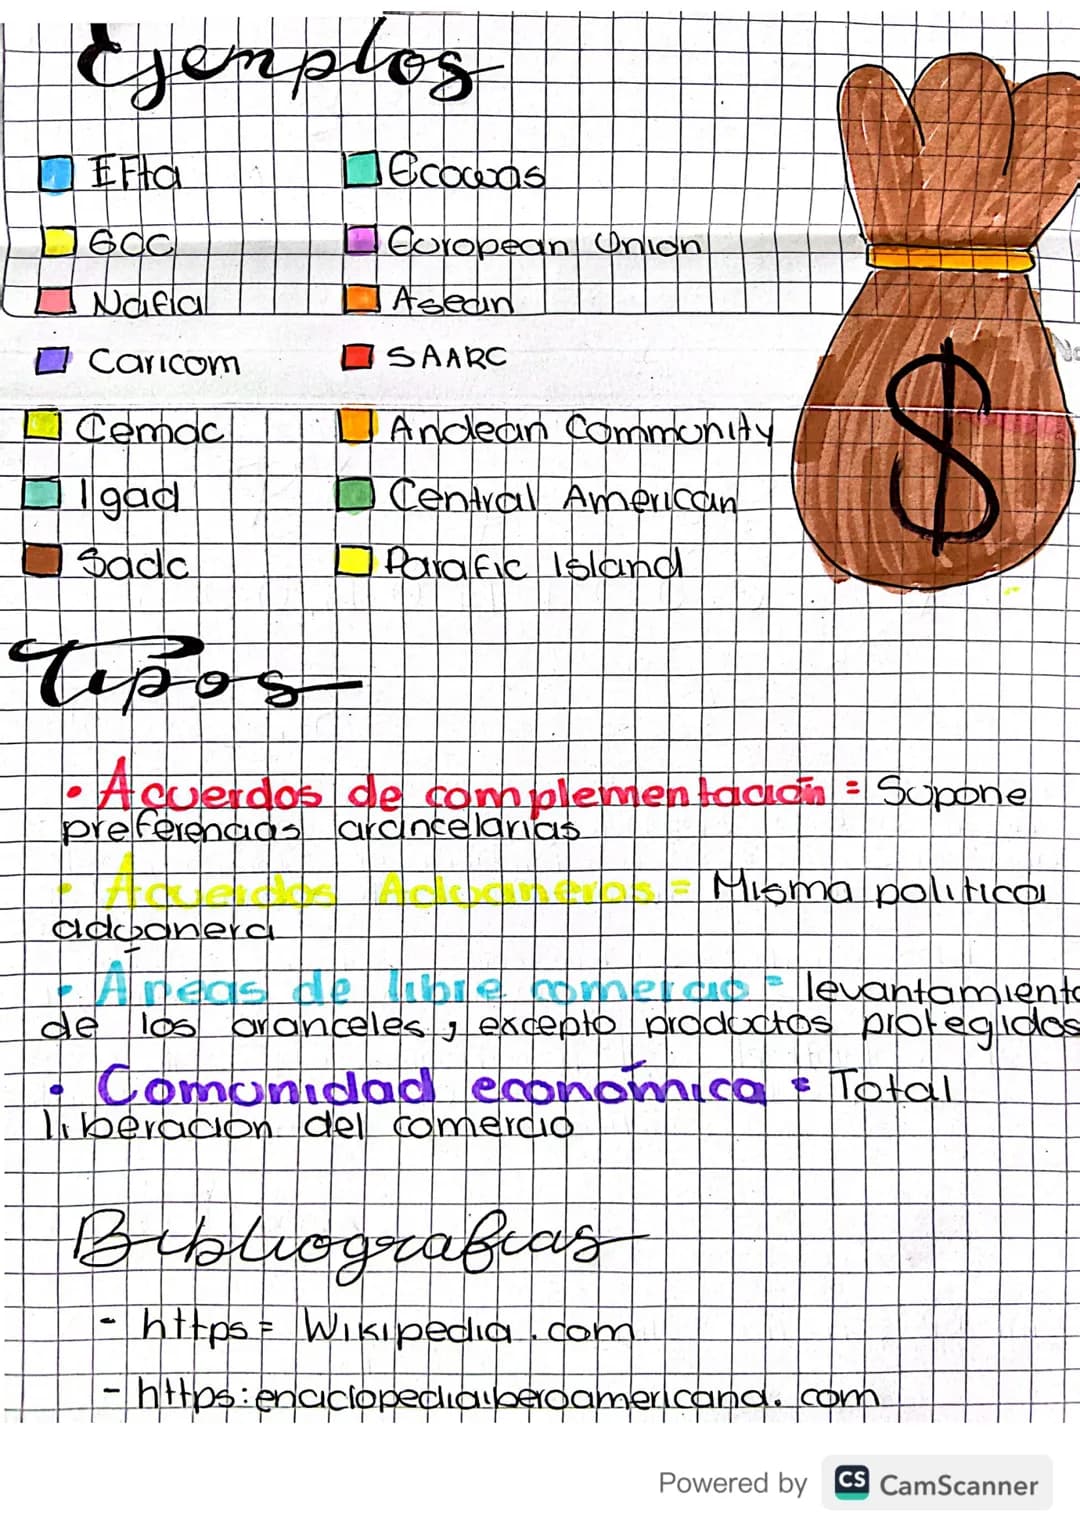 Ejemplos
EFta
Ecowas
GCC
European Union
Nafta
Asean
Caricom
SAARC
Cemac
Andean Community
Igad
Central American
Sadc
Parafic Island
$
Tipos
• Acuerdos de complementación = Supone
preferencias arancelarias
• Acuerdos Aduaneros = Misma politica
aduanera
• Areas de libre comercio = levantamiento
de los aranceles, excepto productos protegidos
• Comunidad económica = Total
liberacion del comercio
Bibliografias
- https = Wikipedia.com
- https:enciclopediaiberoamericana.com
Powered by CS CamScanner